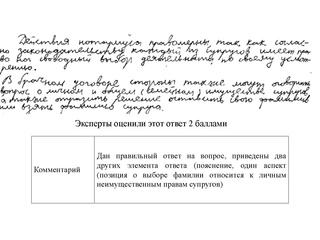 Действия нотариуса правомерны, так как соглас-
но законодательству каждый из супругов имеет пра-
во на свободный выбор деятельности по своему усмот-
рению.
В брачном договоре стороны также могут оговорить
вопрос о личном и общем (семейном) имуществе супругов
а также отразить решение оставить свою фамилию
или взять фамилию супруга.
Эксперты оценили этот ответ 2 баллами
Комментарий
Дан правильный ответ на вопрос, приведены два
других элемента ответа (пояснение, один аспект
(позиция о выборе фамилии относится к личным
неимущественным правам супругов)